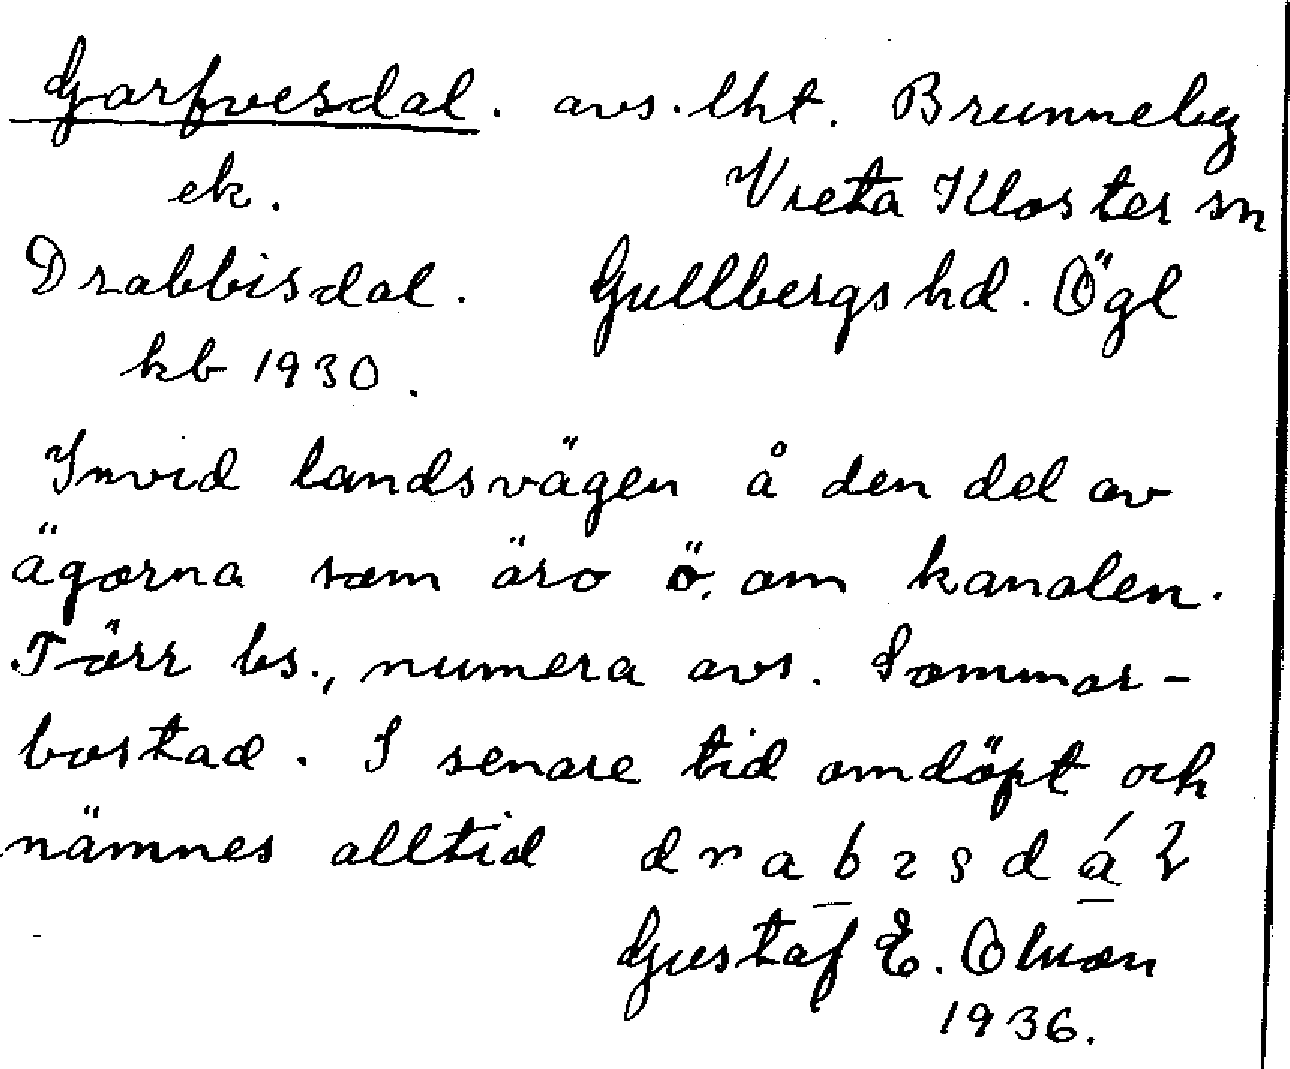 Garfvesdal. avs. lht. Brunneby
ek. Vreta Kloster sn
Drabbisdal. Gullbergs hd. Ögl
kb 1930.
Invid landsvägen å den del av
ägorna som äro ö. om kanalen.
Förr bs., numera avs. Sommar-
bostad. I senare tid omdöpt och
nämnes alltid
Gustaf E. Olsson
1936.